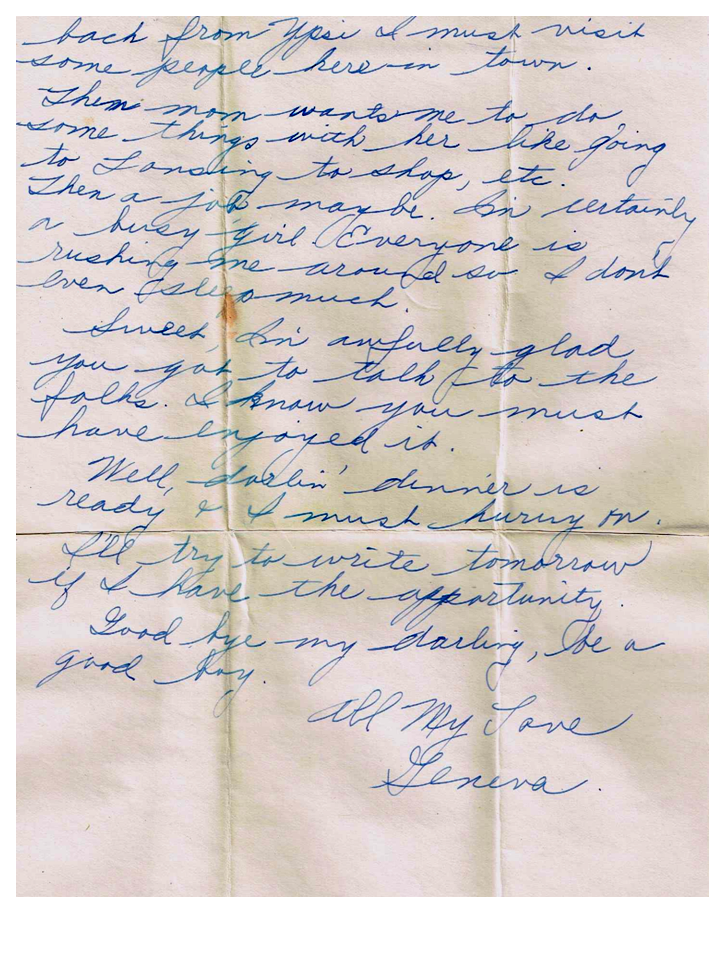 back from Ypsi I must visit
some people here in town.
Then mom wants me to do
some things with her like going
to Lansing to shop, etc.
Then a job maybe. I'm certainly
a busy girl. Everyone is
rushing me around so I don't
even sleep much.
Sweet, I'm awfully glad
you got to talk to the
folks. I know you must
have enjoyed it.
Well, darlin' dinner is
ready & I must hurry on.
I'll try to write tomorrow
if I have the opportunity.
Good bye my darling, be a
good boy.
All My Love
Geneva.